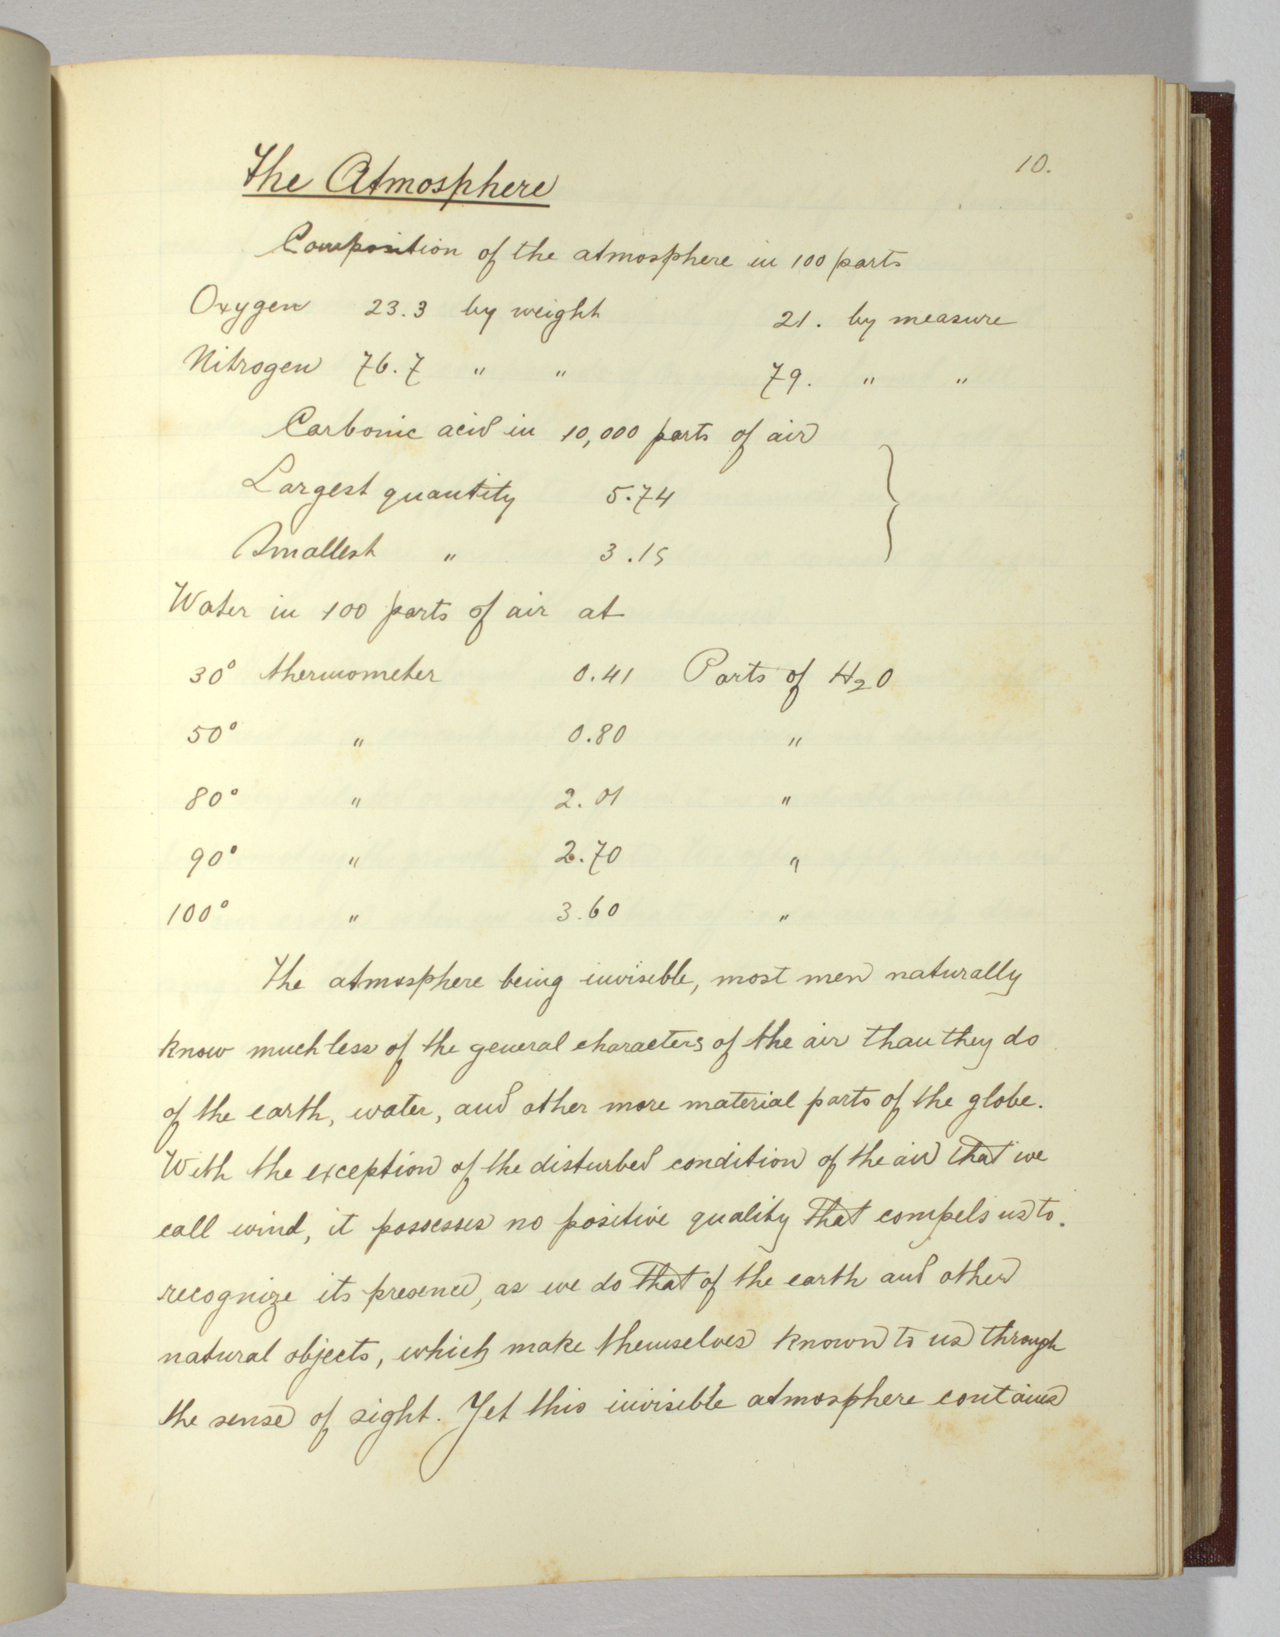 10.
The Atmosphere
Composition of the atmosphere in 100 parts
Oxygen 23.3 by weight 21. by measure
Nitrogen 76.7 " " 79. " "
Carbonic acid in 10,000 parts of air
Largest quantity 5.74
Smallest " 3.15
Water in 100 parts of air at
30° thermometer 0.41 Parts of H2O
50° " 0.80 "
80° " 2.01 "
90° " 2.70 "
100° " 3.60 "
The atmosphere being invisible, most men naturally
know much less of the general characters of the air than they do
of the earth, water, and other more material parts of the globe.
With the exception of the disturbed condition of the air that we
call wind, it possesses no positive quality that compels us to.
recognize its presence, as we do that of the earth and other
natural objects, which make themselves known to us through
the sense of sight. Yet this invisible atmosphere contains